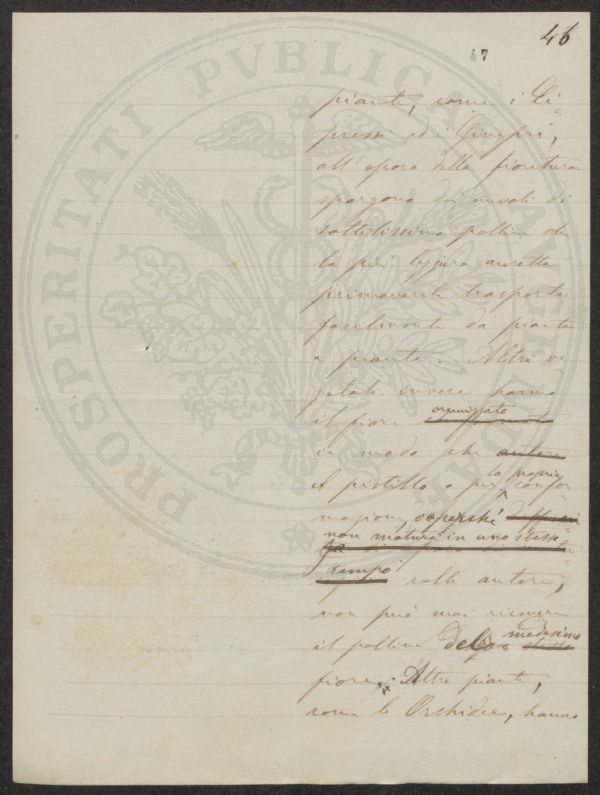 46
47
PROSPERITATI PVBLICAE AVGENDAE
piante, come i Ci-
pressi ed i Ginepri,
all'epoca della fioritura
spargono dei nuvoli di
sottilissimo polline che
la più leggera auretta
primaverile trasporta
facilmente da pianta
a pianta. Altri ve-
getali invece hanno
il fiore organizzato
in modo che antere
il pistillo o per la propria confor-
mazione, o perchè
non matura in uno stesso
tempo colle antere,
non può mai ricevere
il polline del medesimo
fiore. Altre piante,
come le Orchidee, hanno